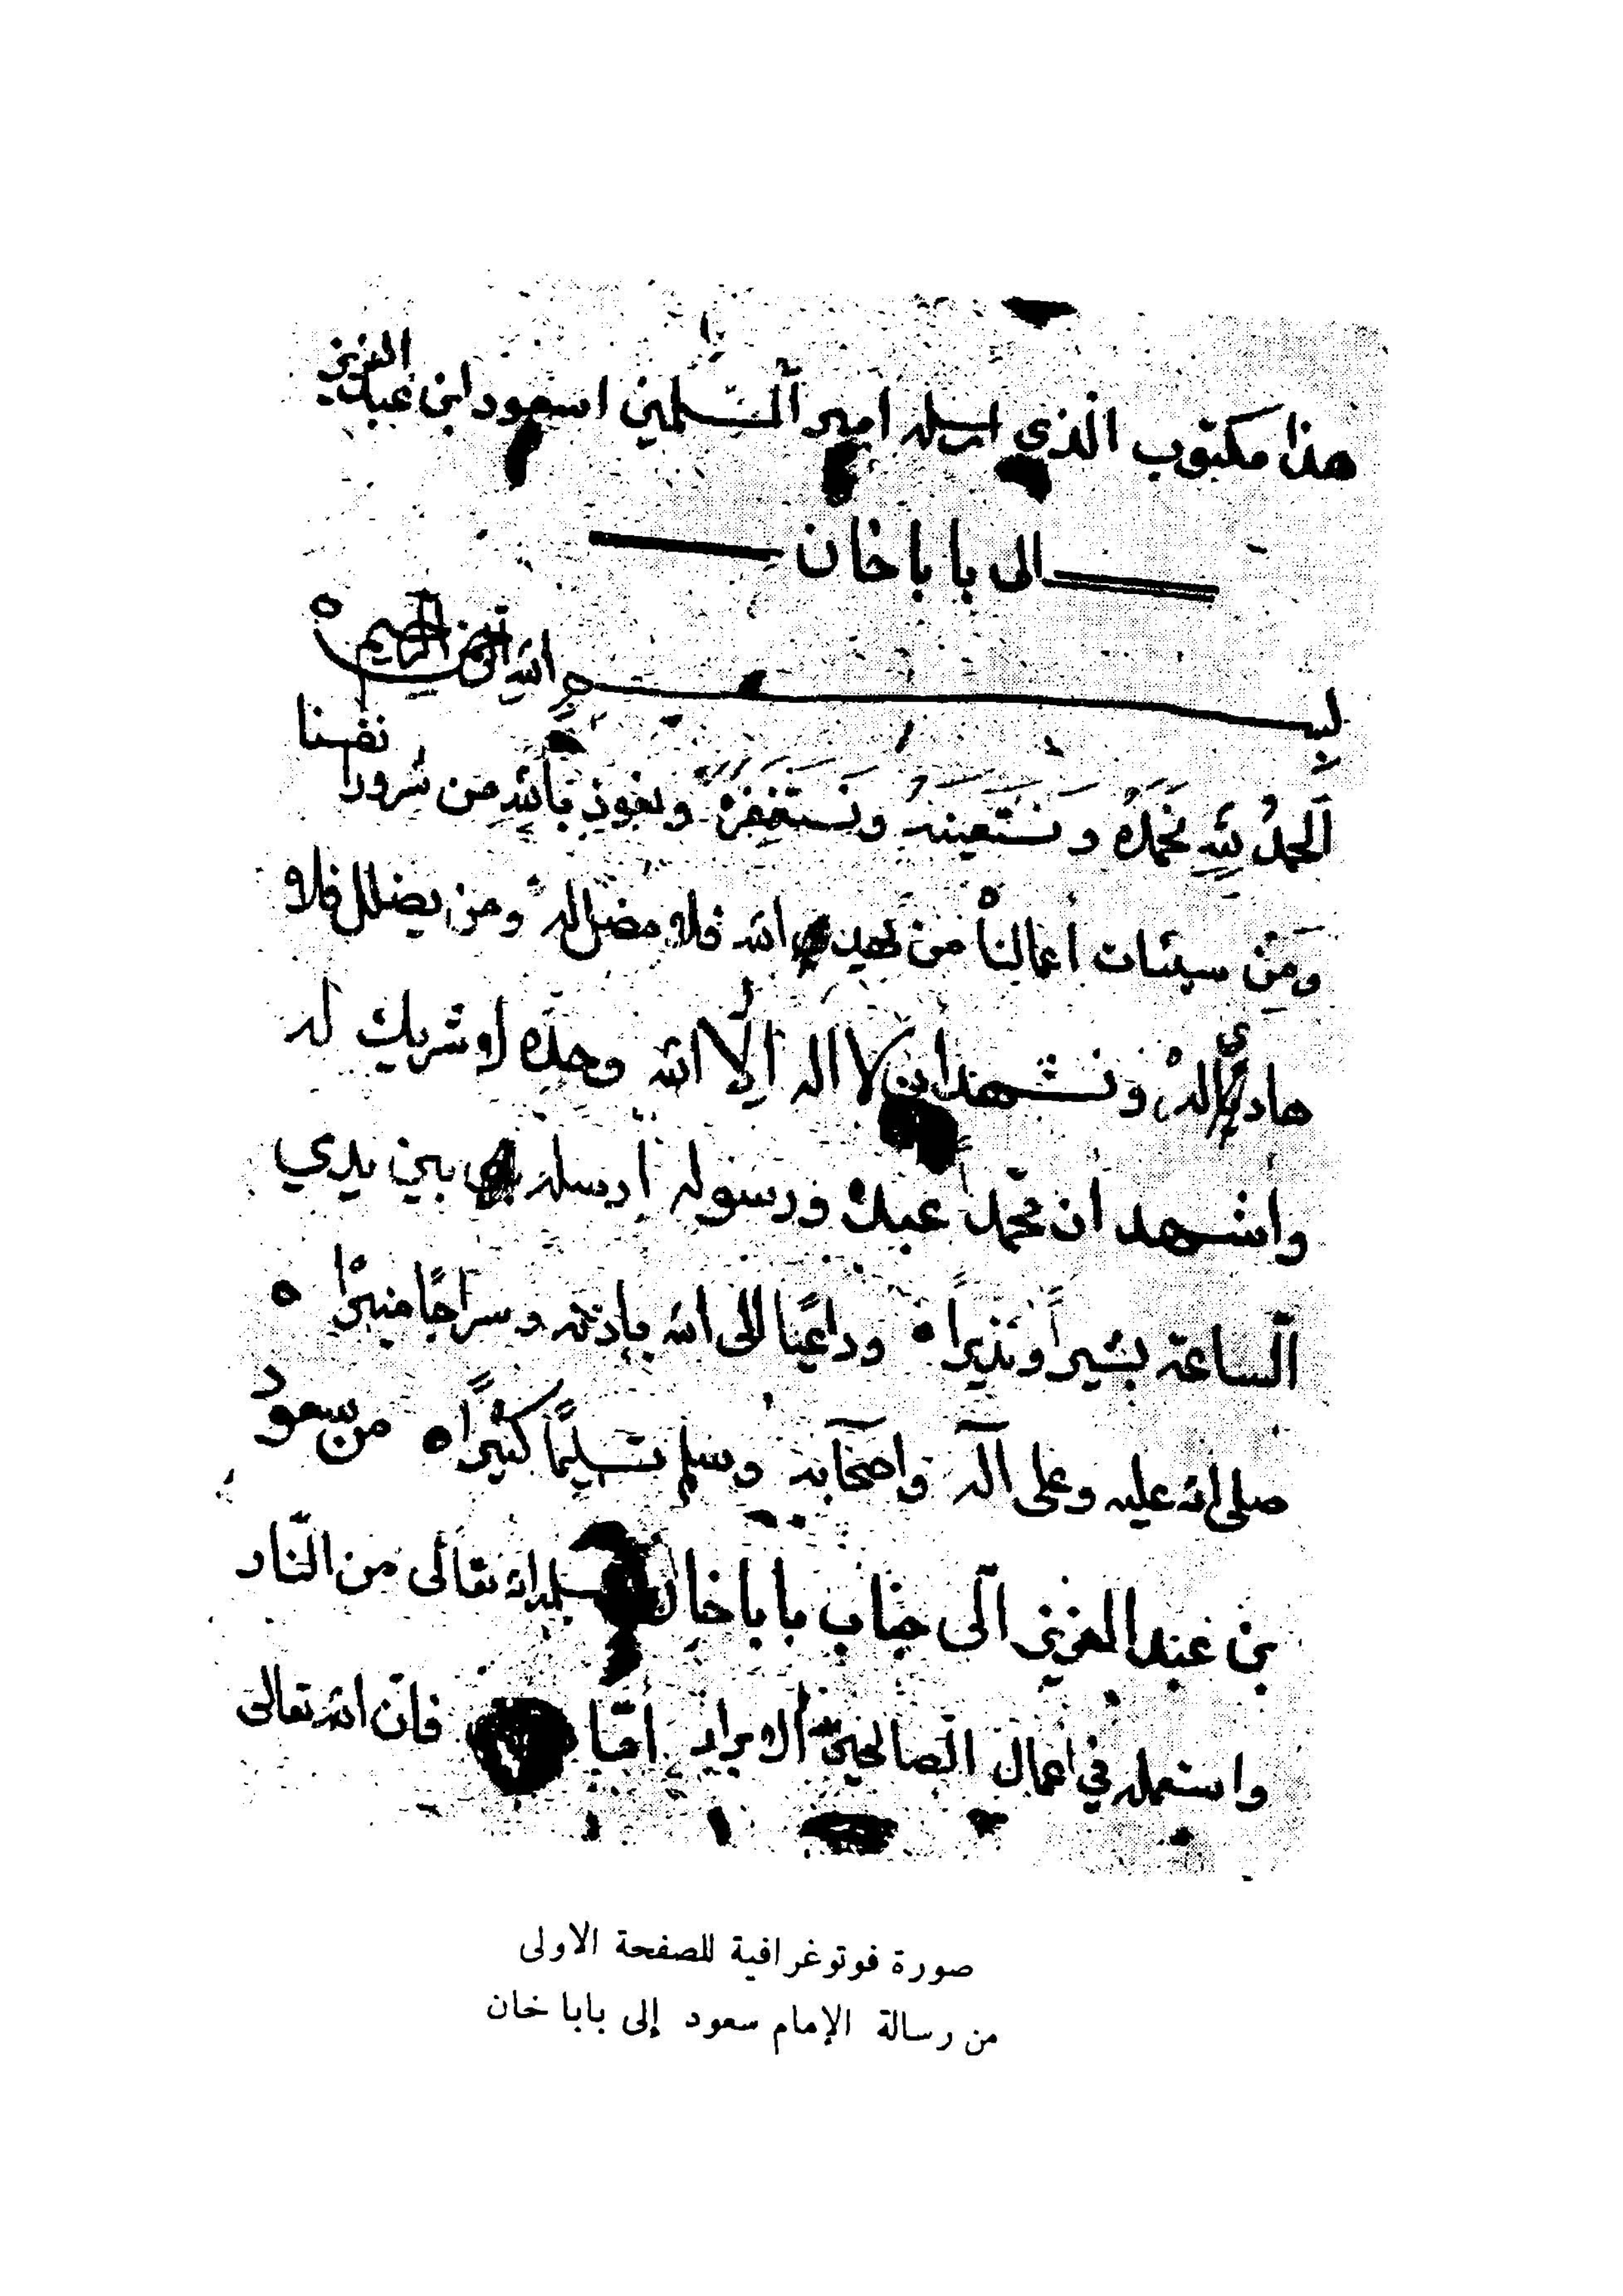 هذا مكتوب الذي ارسله امير المسلمين اسعود ابن عبد العزيز
الى بابا خان
بسم الله الرحمن الرحيم ه
اَلحمدُ لِلّٰهِ نحمَدُه ونستعينه ونستغفره ونعوذ بالله من شرور انفسنا
ومِنْ سيئات أعمالنا من يهدي الله فلا مضل له ومن يضلل فلا
هادي له ونشهد ان لا اله الا الله وحده لا شريك له
واشهد ان محمد عبده ورسوله ارسله بين يدي
الساعة بشيراً ونذيراً ه وداعيًا الى الله بإذنه وسراجًا منيرًا ه
صلى الله عليه وعلى آله واصحابه وسلم تسليمًا كثيرًا ه من سعود
بن عبد العزيز الى جناب بابا خان سلمه الله تعالى من النّار
واستعمله في اعمال الصالحين الابرار أمّا فانّ الله تعالى
صورة فوتوغرافية للصفحة الاولى
من رسالة الإمام سعود إلى بابا خان